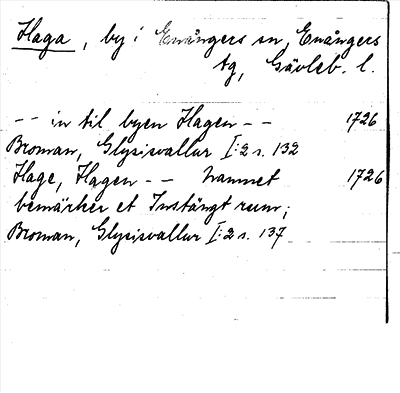 Haga, by i Enångers sn, Enångers
tg, Gävleb. l.
-- in til byen Hagen -- 1726
Broman, Glysisvallur I:2 s. 132
Hage, Hagen -- namnet 1726
bemärker et Instängt rum;
Broman, Glysisvallur I:2 s. 137